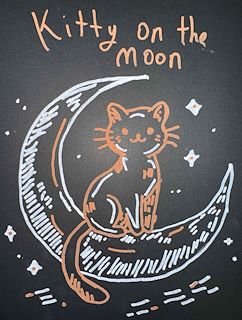 Kitty on the
moon